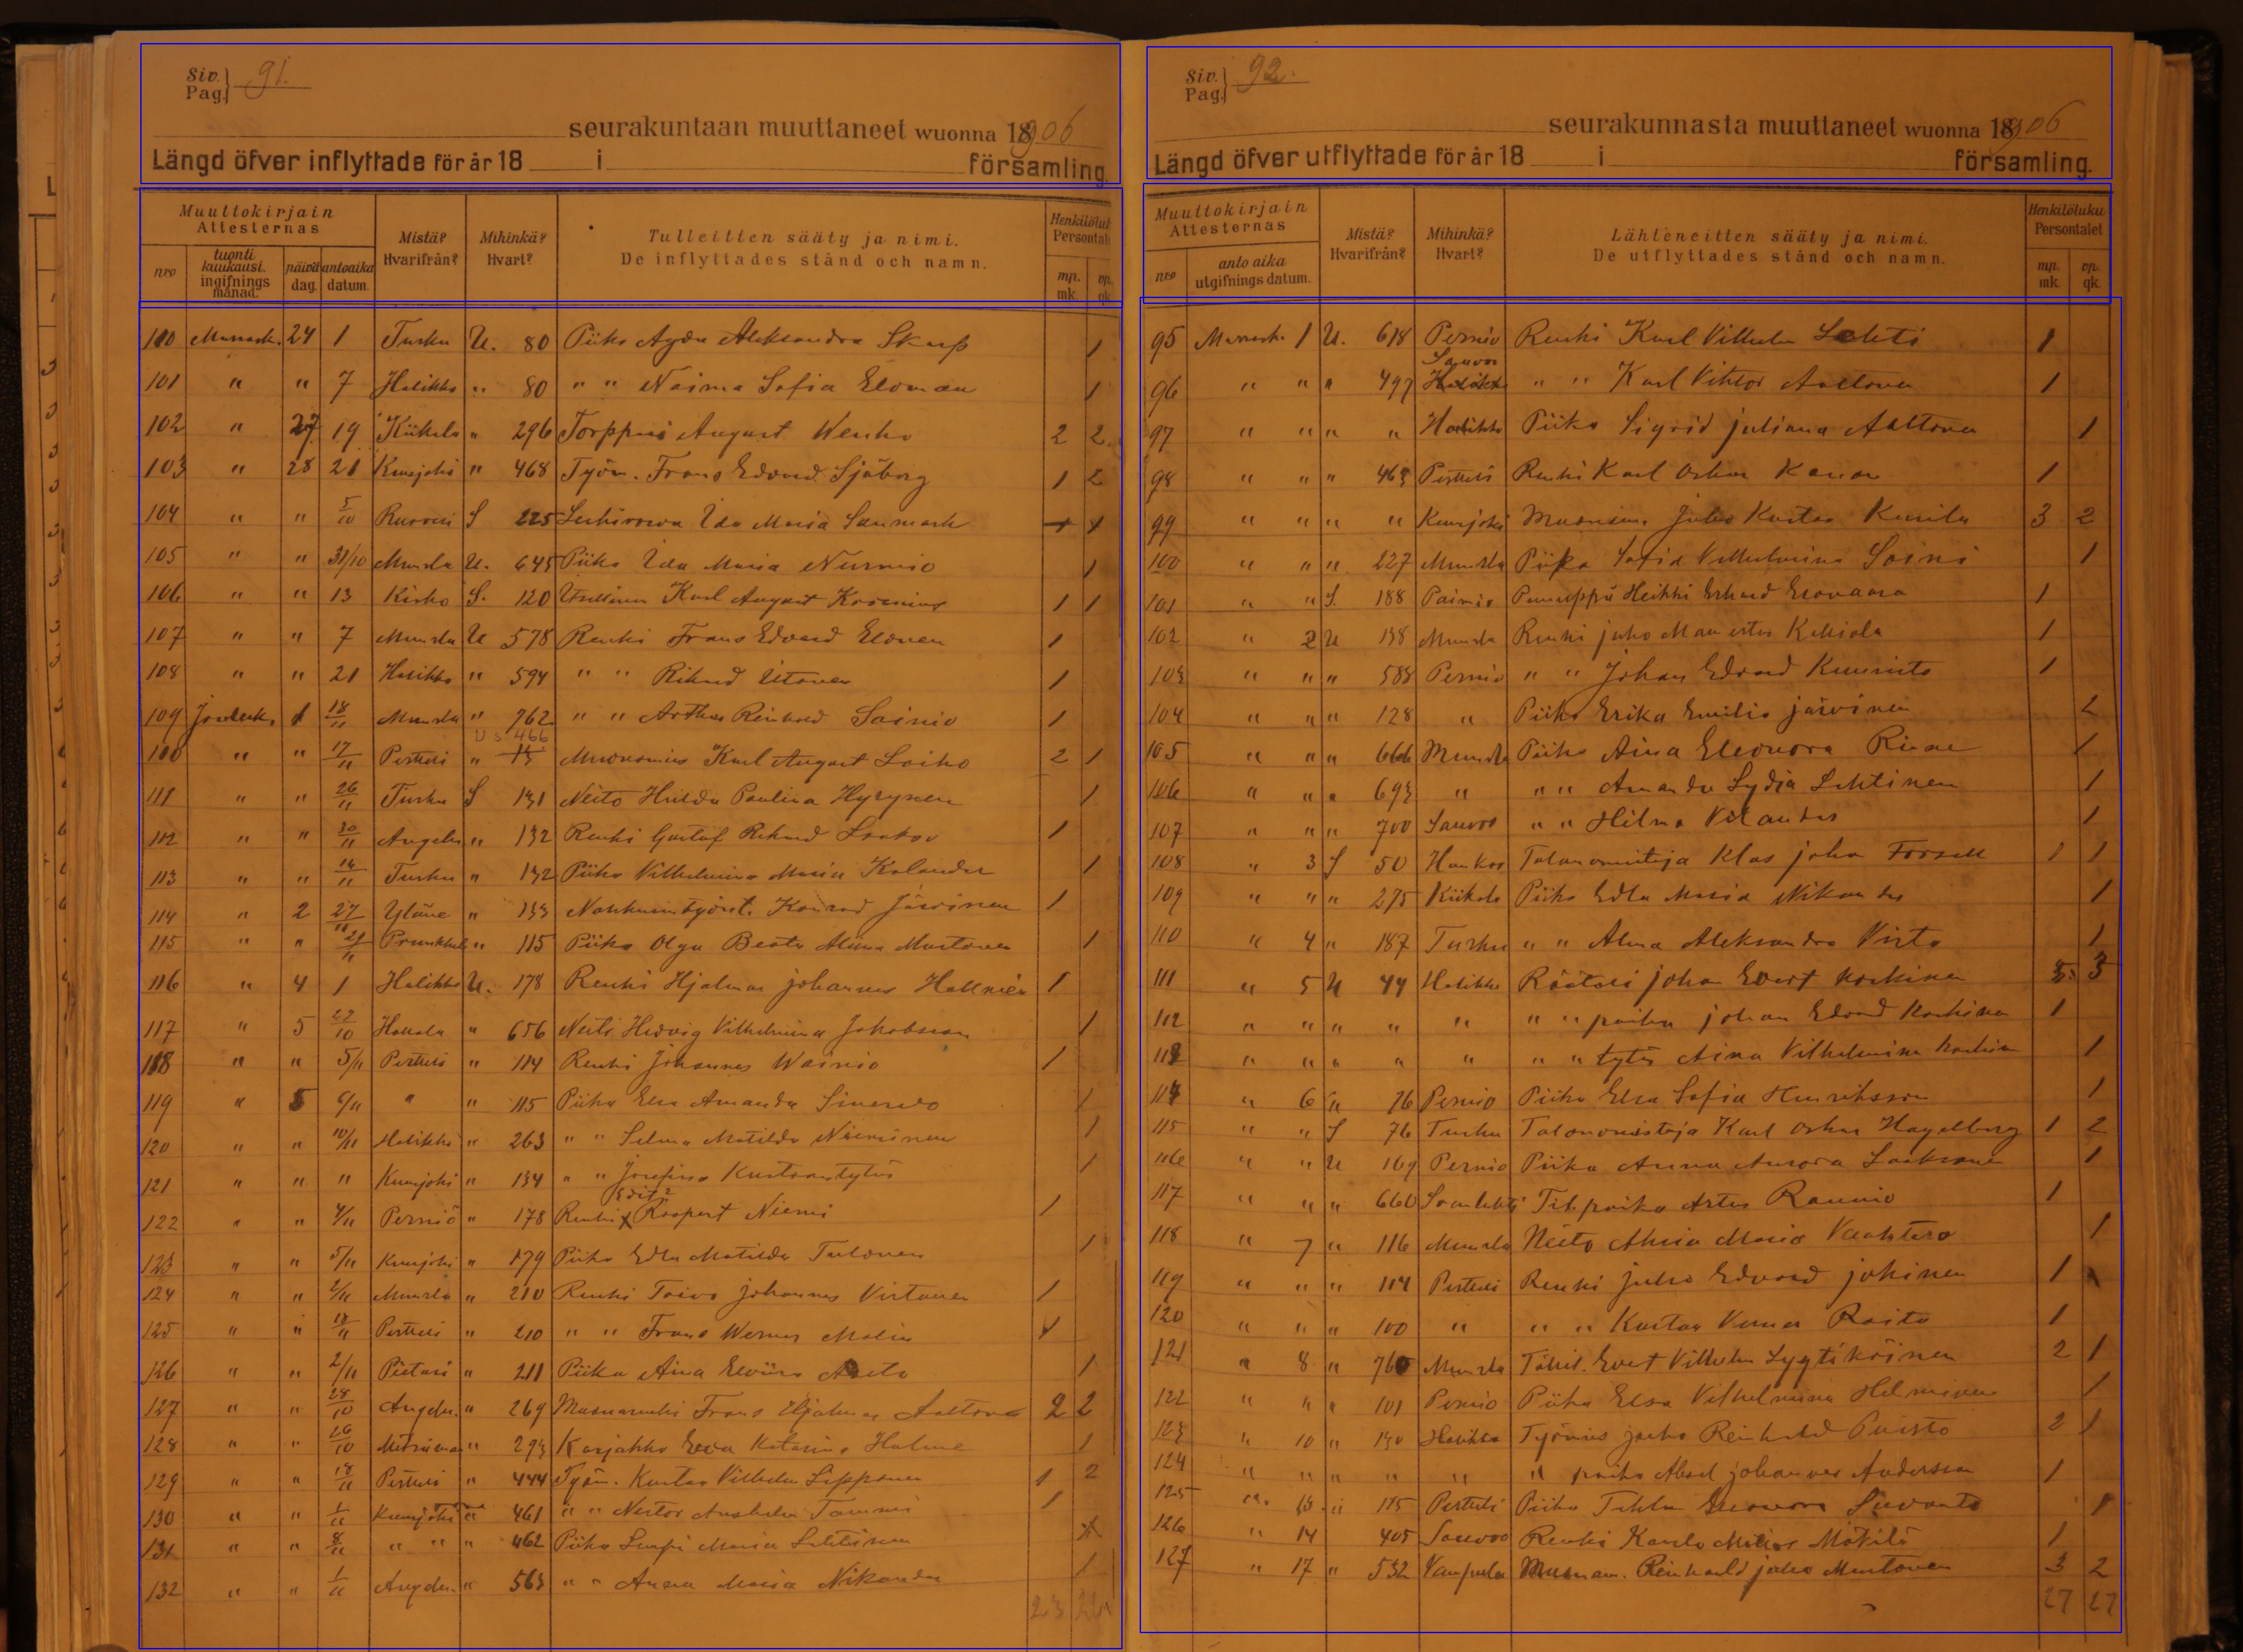 Siv. Pag. 91.
seurakuntaan muuttaneet wuonna 1906
Längd öfver inflyttade för år 18 i församling.
Muuttokirjain Attesternas
nro tuonti kuukausi. ingifnings månad. päivä dag. antoaika datum.
Mistä? Hvarifrån?
Mihinkä? Hvart?
Tulleitten sääty ja nimi.
De inflyttades stånd och namn.
Henkilöluk Persontal
mp. mk. vp. qk.
100 Marrask. 24 1 Turku U. 80 Piika Ayda Aleksandra Skarp 1
101 " " 7 Halikko " 80 " " Naima Sofia Eloman 1
102 " 27 19 Kiikala " 296 Torppari August Wenho 2 2
103 " 28 21 Kuusjoki " 468 Työm. Frans Edvard Sjöberg 1 2
104 " " 5/10 S 225 Ida Maria Sanmark
105 " " 31/10 Muurla U. 645 Piika Ida Maria Nurmio 1
106 " " 13 Kisko S. 120 Karl August 1 1
107 " " 7 Muurla U 578 Renki Frans Edvard Elonen 1
108 " " 21 Halikko " 594 " " Rikard Utonen 1
109 Jouluk. 1 18/11 Muurla " 762 " " Arthur Reinhold Sainio 1
110 " " 17/11 Pertteli " U s 466 Karl August Laiho 2 1
111 " " 26/11 Turku S 131 Neito Hulda Paulina Hyrynen 1
112 " " 30/11 Angeln. " 132 Renki Gustaf Rikard 1
113 " " 14/11 Turku " 132 Piika Vilhelmina Maria Kalander 1
114 " 2 27/11 Yläne " 133 Konrad Järvinen 1
115 " " 29/11 " 115 Piika Olga Beata Alina Martonen 1
116 " 4 1 Halikko U. 178 Renki Hjalmar Johannes 1
117 " 5 22/10 " 656 Neiti Hedvig Vilhelmina Jakobsson 1
118 " " 5/11 Pertteli " 114 Renki Johannes Wainio 1
119 " 5 6/11 " " 115 Piika Elsa Amanda Sinervo 1
120 " " 10/11 Halikko " 263 " " Selma Matilda Nieminen 1
121 " " " Kuusjoki " 134 " " Josefina Kustaantytär 1
122 " " 4/11 Perniö " 178 Renki Roopert Niemi 1
123 " " 5/11 Kuusjoki " 179 Piika Edla Matilda Tulonen 1
124 " " 2/11 Muurla " 210 Renki Toivo Johannes Virtanen 1
125 " " 18/11 Pertteli " 210 " " Frans Werner Malin 1
126 " " 2/11 Pietari " 211 Piika Aina Elviira 1
127 " " 28/10 Angeln. " 269 Muonarenki Frans Hjalmar Aaltonen 2 2
128 " " 26/10 " 293 Karjakko Eeva Katarina Halme 1
129 " " 18/11 Pertteli " 444 Työm. Kustaa Vilhelm Seppänen 1 2
130 " " 1/11 Kuusjoki " 461 " " Nestor Anshelm Tammi 1
131 " " 8/11 " " " 462 Piika Lempi Maria Lehtinen
132 " " 1/11 Angeln. " 563 " " Anna Maria Nikander 1
23
Siv. Pag. 92.
seurakunnasta muuttaneet wuonna 1906
Längd öfver utflyttade för år 18 i församling.
Muuttokirjain Attesternas
nro anto aika utgifnings datum.
Mistä? Hvarifrån?
Mihinkä? Hvart?
Lähteneitten sääty ja nimi.
De utflyttades stånd och namn.
Henkilöluku Persontalet
mp. mk. vp. qk.
95 Marrask. 1 U. 618 Perniö Renki Karl Vilhelm Lehti 1
96 " " " 497 Sauvoo Halikko " " Karl Vihtor Aaltonen 1
97 " " " " Halikko Piika Sigrid Juliana Aaltonen 1
98 " " " 463 Pertteli Renki Karl Oskar Kanon 1
99 " " " " Kuusjoki Juho Kustaa Kunila 3 2
100 " " " 227 Muurla Piika Sofia Vilhelmina Saini 1
101 " " S. 188 Paimio Heikki Erhard Elovaara 1
102 " 2 U 138 Muurla Renki Juho 1
103 " " " 588 Perniö " " Johan Edvard Kuusisto 1
104 " " " 128 " Piika Erika Emilia Järvinen 2
105 " " " 666 Muurla Piika Aina Eleonora Rinne 1
106 " " " 693 " " " Amanda Lydia Lehtinen 1
107 " " " 700 Sauvoo " " Hilma Vilander 1
108 " 3 S 50 Hankoo Talonomistaja Klas Johan Forsell 1 1
109 " " " 275 Kiikala Piika Edla Maria Nikander 1
110 " 4 " 187 Turku " " Alma Aleksandra Virta 1
111 " 5 U 44 Halikko Räätäli Johan Evert Koskinen 3
112 " " " " " " " poika Johan Edvard Koskinen 1
113 " " " " " " " tytär Aina Vilhelmina Koskinen 1
114 " 6 " 76 Perniö Piika Elsa Sofia Henriksson 1
115 " " S 76 Turku Talonomistaja Karl Oskar Hagelberg 1 2
116 " " U 169 Perniö Piika Anna Aurora Laaksonen 1
117 " " " 660 Til. poika Artur Raunio 1
118 " 7 " 116 Muurla Neito Maria Vaahtera 1
119 " " " 114 Pertteli Renki Juho Edvard Jokinen 1
120 " " " 100 " " " Kustaa Verner Raita 1
121 " 8 " 760 Muurla Evert Vilhelm Lyytikäinen 2 1
122 " " " 101 Perniö Piika Elsa Vilhelmina Helminen 1
123 " 10 " 130 Halikko Työmies Juho Reinhold Puisto 2 1
124 " " " " " " poika Aksel Johannes Andersson 1
125 " 13 " 115 Pertteli Piika Tekla Eleonora 1
126 " 14 405 Sauvoo Renki Kaarlo Mäkilä 1
127 " 17 " 532 Vampula Reinhold Juho Martonen 3 2
27 27